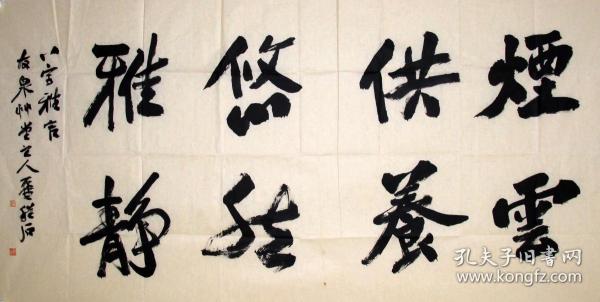 煙雲
供養
悠然
雅静
八字雅言
古泉草堂主人
孔夫子旧书网
www.kongfz.com